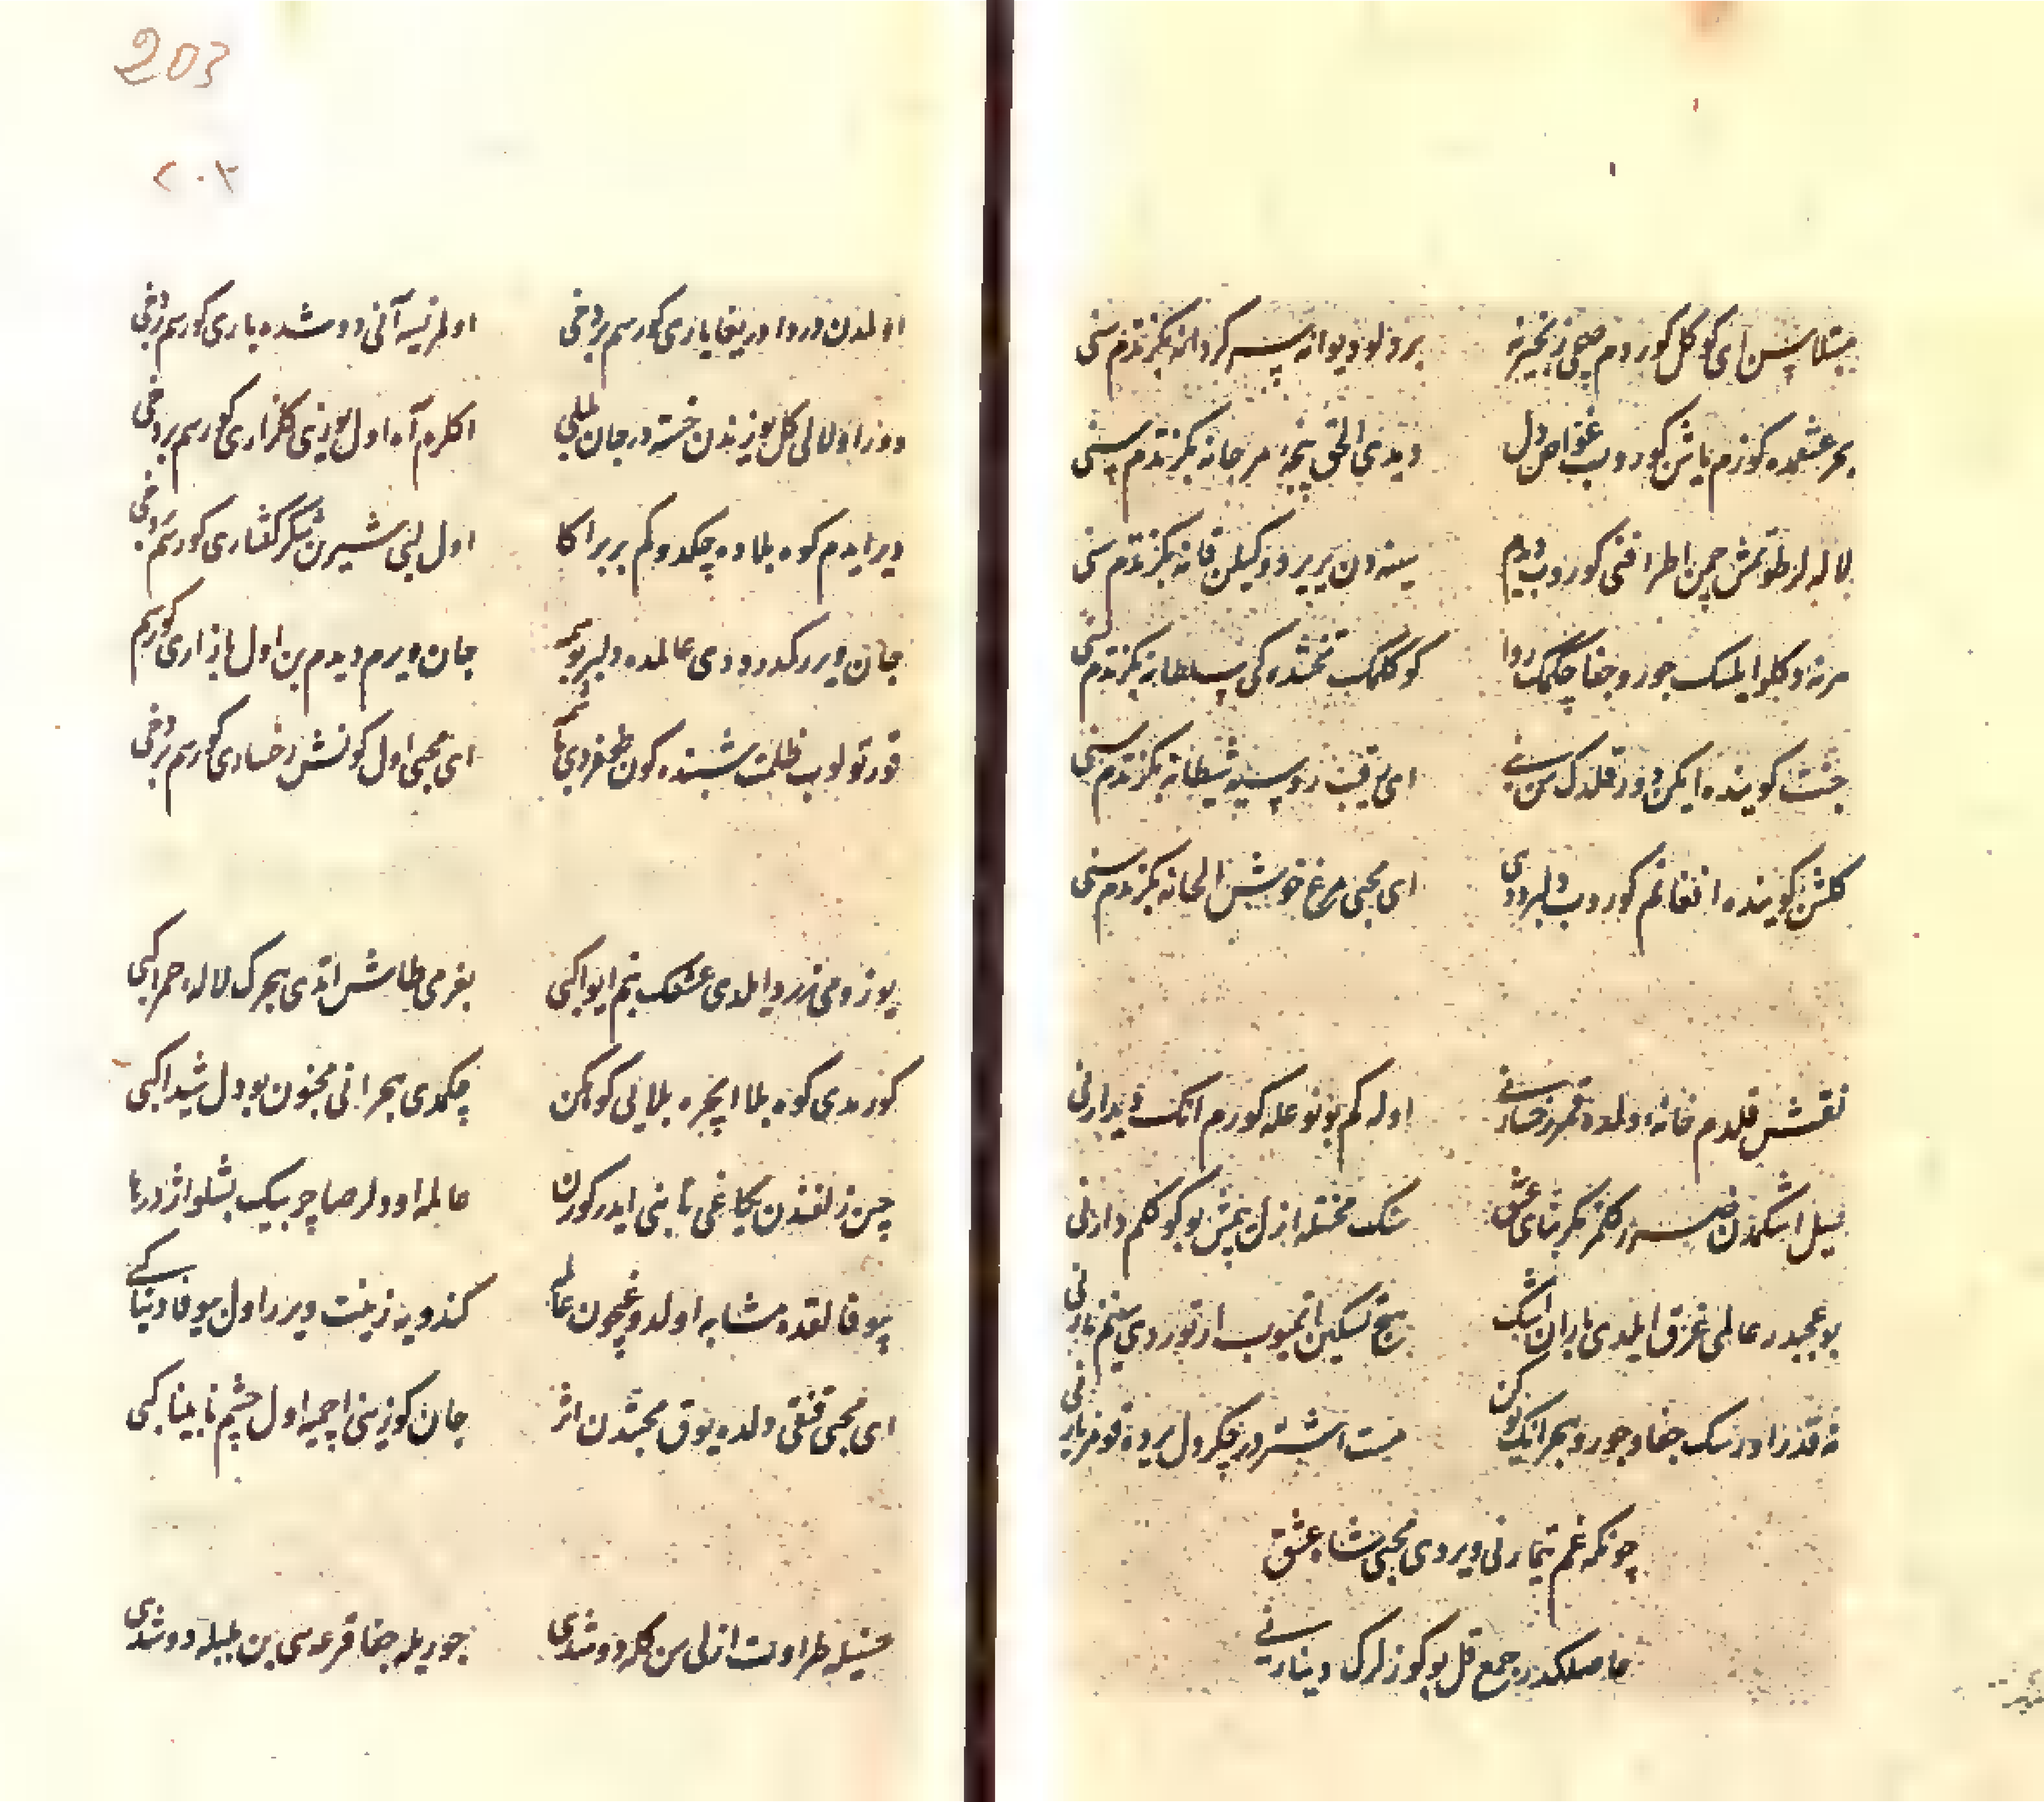 مبتلاسن ای کوکل کوردم صچی زنجیرنه
بر دلو دیوانه سرکردانه بکزتدم سنی
بحر عشقده کوزم یاشن کوروب غواص دل
دیدی الحق پنجۀ مرجانه بکزتدم سنی
لاله لر طوتمش چمن اطرافنی کوروب دیدم
سینه دن یر یر دوکیلن قانه بکزتدم سنی
هر نه دکلو ایلسک جور و جفا چکمک روا
کوکلمک تختنده کی سلطانه بکزتدم سنی
جنت کوینده ایکن دور قلدک سن بنی
ای رقیب رو سیه شیطانه بکزتدم سنی
کلشن کوینده افغانم کوروب دلبر ددی
ای محبی مرغ خوش الحانه بکزتدم سنی
نقش قلدم خانۀ دلده قمر رخسارنی
اوله کم بو نوعله کورم انک دیدارنی
سیل اشکمدن خلل ارکلمز مکر بنای عشق
سنک محنتله ازل یپمش بو کوکلم دارنی
بو عجبدر عالمی غرق ایلدی باران اشک
هیچ تسکین اتمیوب ارتوردی سینم نارنی
نه قدر اورسک جفا و جور و هجر انک بوکن
مست اشتردر چکر دل یرده قومز بارنی
چونکه غم تیمارنی ویردی محبی شاه عشق
حاصلکدر جمع قل بو کوزلرک دینارنی
203
٢٠٣
اولمدن دردا دریغا یاری کورسم بر دخی
اولر نیسه آنی دوشده باری کورسم بر دخی
دور اولالی کل یوزندن خسته در جان بلبلی
اکلرم آه اول یوزی کلزاری کورسم بر دخی
دیر ایدم کوه بلاده چکدوکم بر بر اکا
اول لبی شیرین شکر کفتاری کورسم بر دخی
جان ویررکدر ددی عالمده دلبر بوسمه
جان ویرم دیدم بن اول بازاری کورسم
قورتولوب ظلمت شبنده کون طوغردی باشمه
ای محبی اول کونش رخساری کورسم بر دخی
یوزومی زرد ایلدی عشقک بنم ایوا کبی
بغرمی طاش اتدی هجرک لالۀ حمرا کبی
کورمدی کوه بلا ایچره بلایی کوهکن
چکمدی هجرانی مجنون بو دل شیدا کبی
چین زلفندن یکاغی تابنی ایدر کورن
عالمه اودلر صاچر بیک باشلو اژدرها کبی
بیوفالقده مشابه اولدوغیچون عالمه
کندویه زینت ویرر اول بیوفا دنیا کبی
ای محبی قنقی دلده یوق محبتدن اثر
جان کوزینی اچمیه اول چشم نابینا کبی
حسنیله طراوت ازلی سن کله دوشدی
جوریله جفا قرعه سی بن بلبله دوشدی